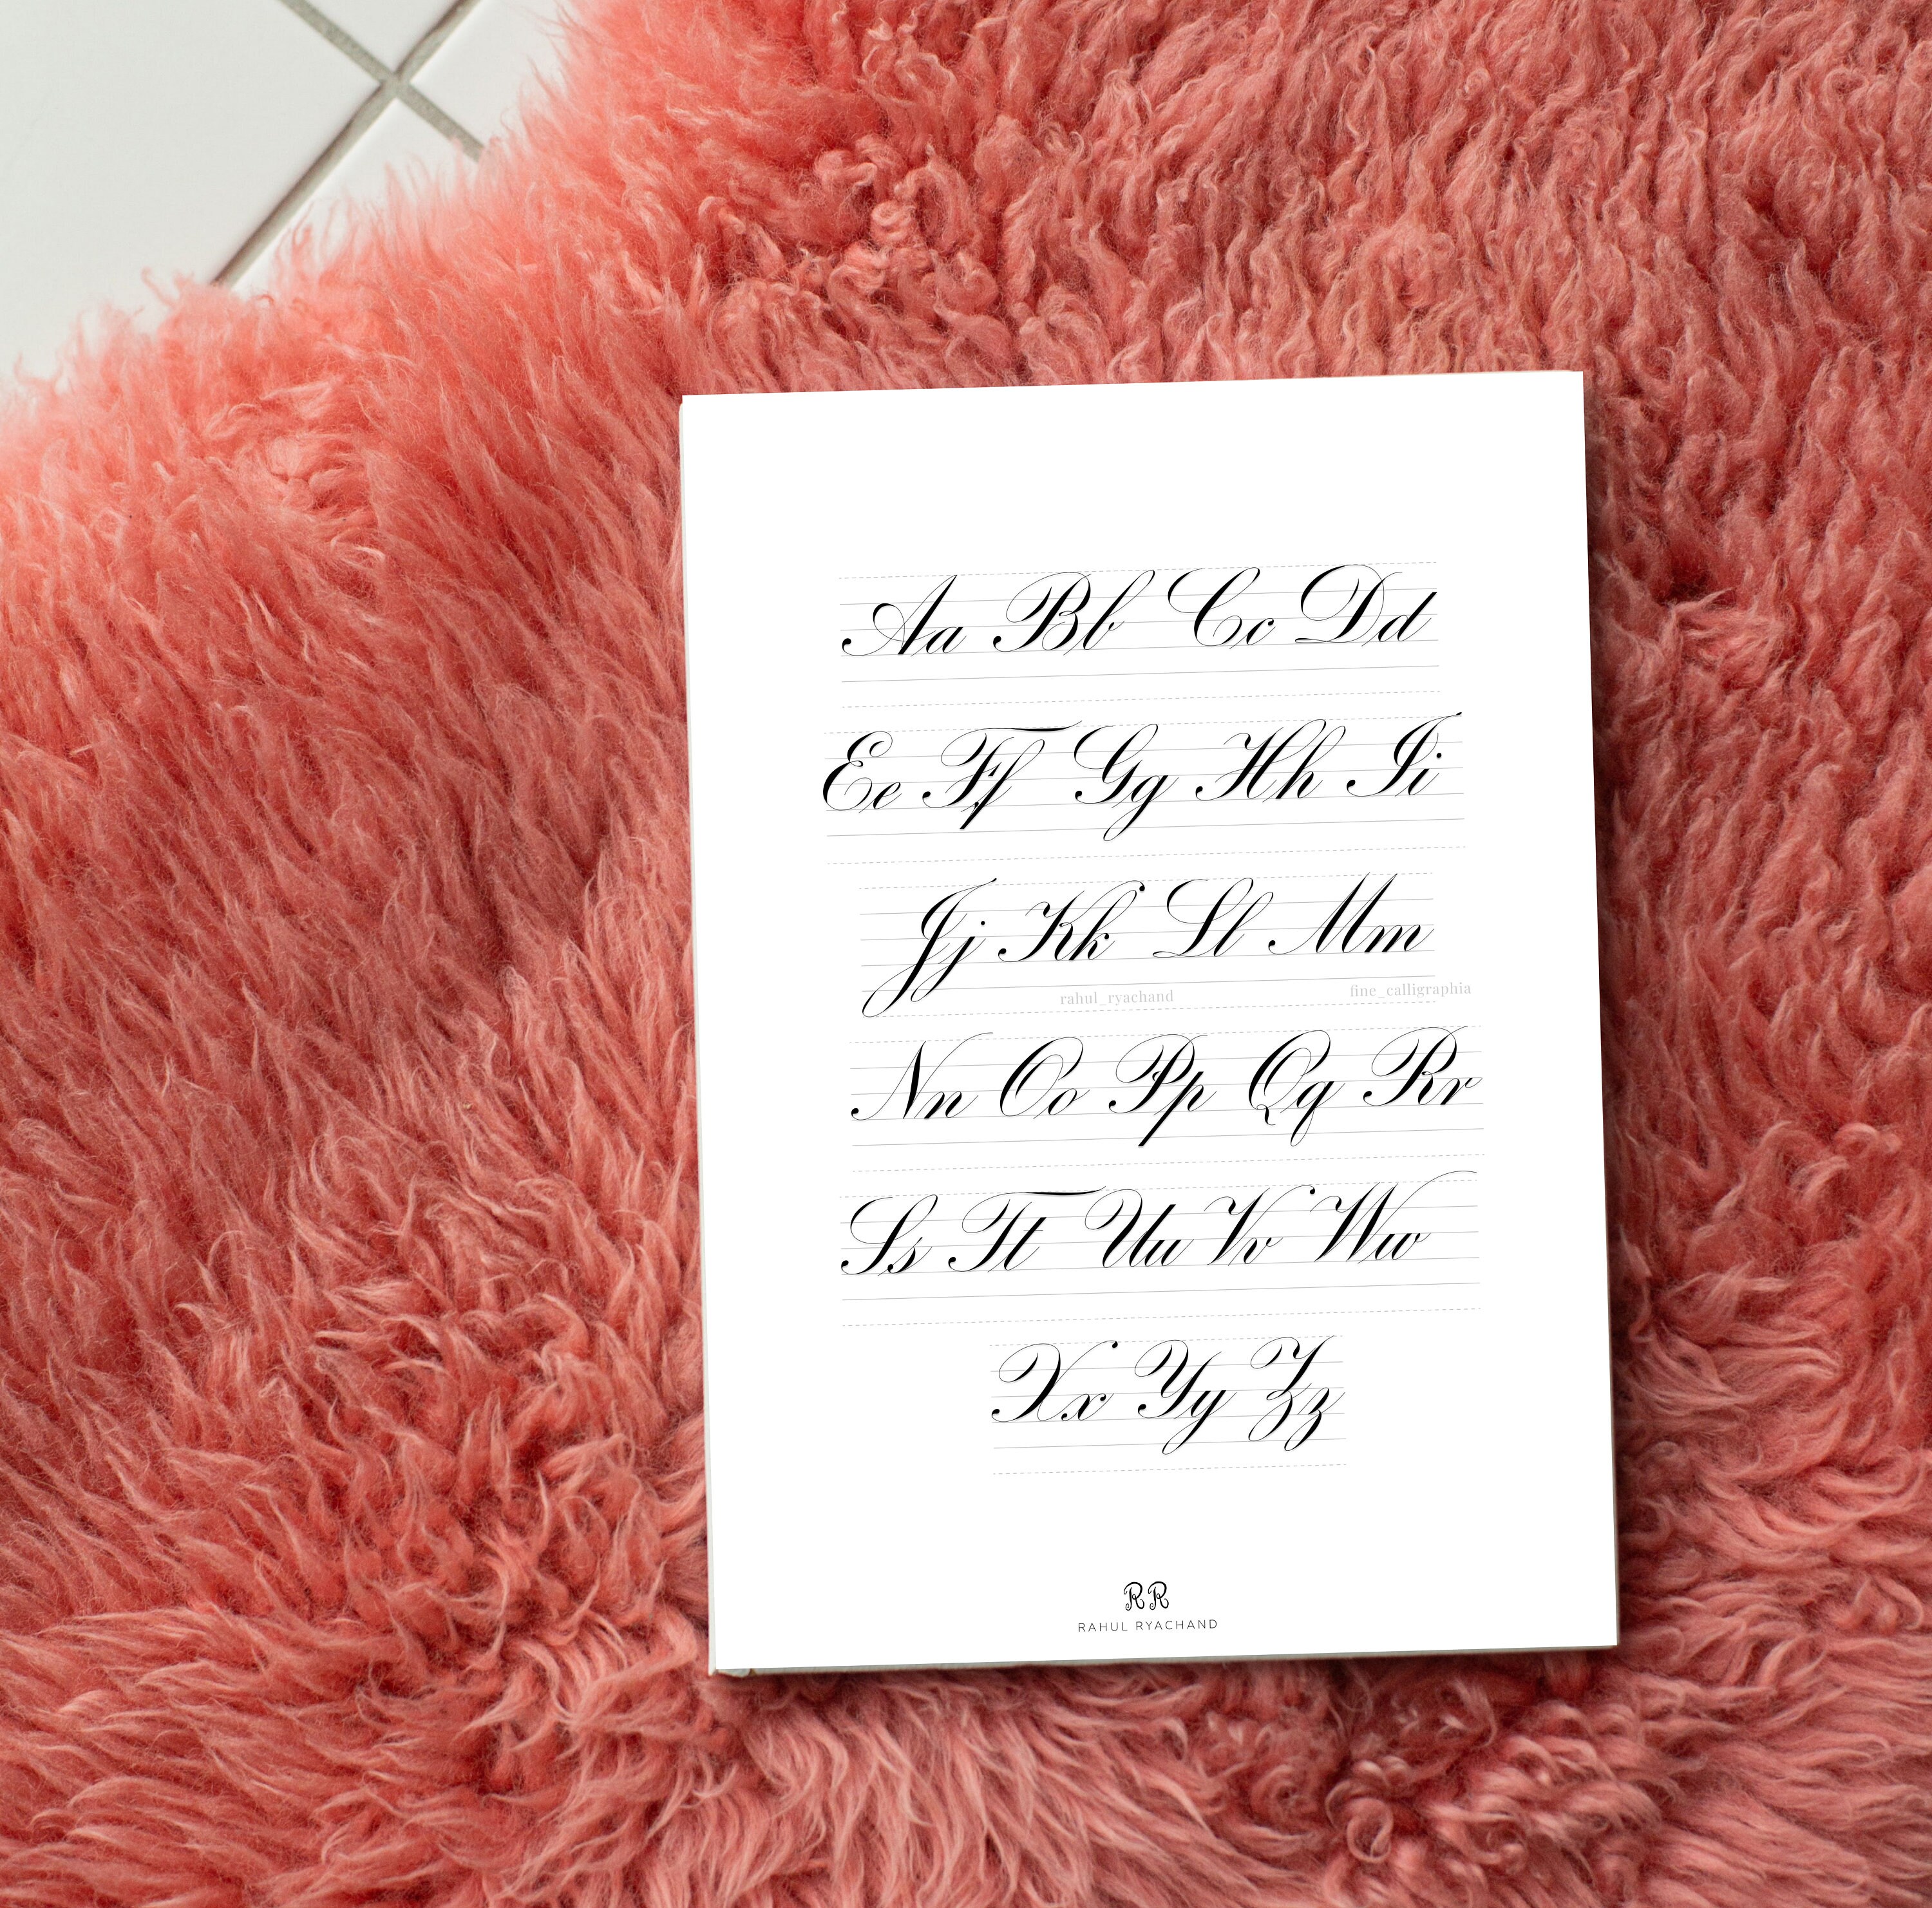 Aa Bb Cc Dd
Ee Ff Gg Hh Ii
Jj Kk Ll Mm
rahul_ryachand fine_calligraphia
Nn Oo Pp Qq Rr
Ss Tt Uu Vv Ww
Xx Yy Zz
RR
RAHUL RYACHAND